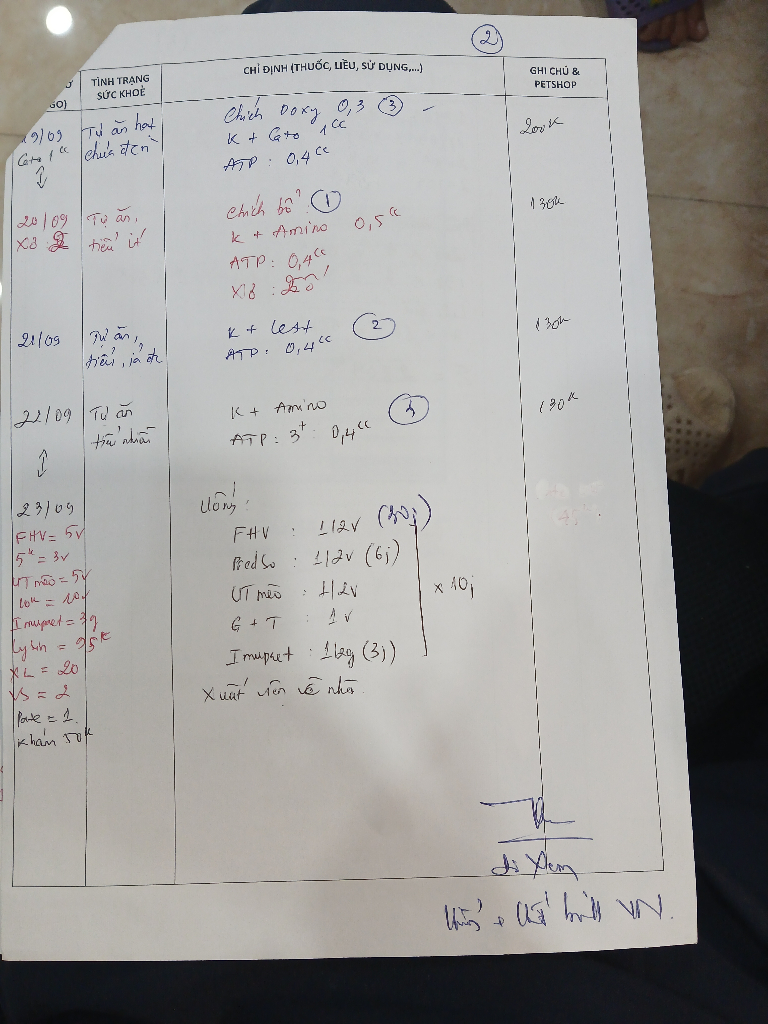 2
TÌNH TRẠNG SỨC KHOẺ
CHỈ ĐỊNH (THUỐC, LIỀU, SỬ DỤNG,...)
GHI CHÚ & PETSHOP
19/09
Cato 1cc
Tự ăn hạt
chưa
Chích Doxy 0,3 3
K + Cato 1cc
ATP: 0,4cc
200K
20/09
Tự ăn,
tiểu ít
Chích bổ 1
K + Amino 0,5cc
ATP: 0,4cc
130K
21/09
Tự ăn,
tiểu,
K + 2
ATP: 0,4cc
130K
22/09
Tự ăn
tiểu
K + Amino
ATP: 3+: 0,4cc
130K
23/09
FHV = 5v
5K = 3v
UT mèo = 5v
10K = 10v
Imupret = 3g
= 95K
XL = 20
VS = 2
= 1.
Khám 50K
Uống:
FHV : 1/2v
: 1/2v (6j)
UT mèo : 1/2v
G + T : 1v
Imupret : (3j)
x 10j
Xuất viện về nhà.